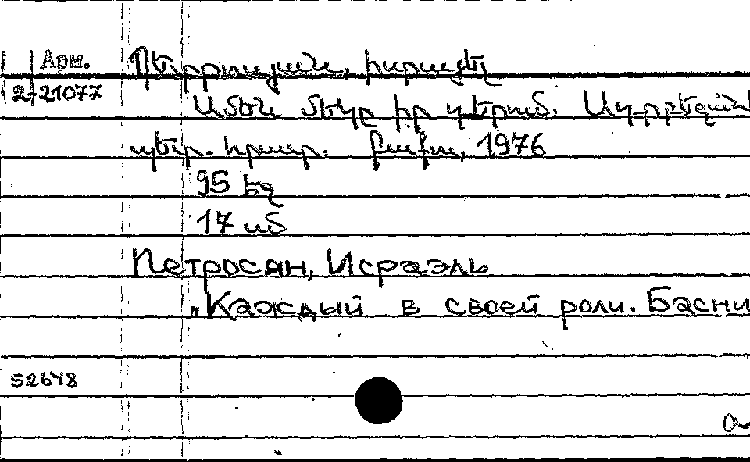 Арм.
2-21077
Պետրոսյան, Իսրայել
Ամեն մեկը իր դերում. Ադրբեջան
պետ. հրատ. Բաքու, 1976
95 էջ
17 սմ
Петросян, Исраэль
„Каждый в своей роли. Басни
52648